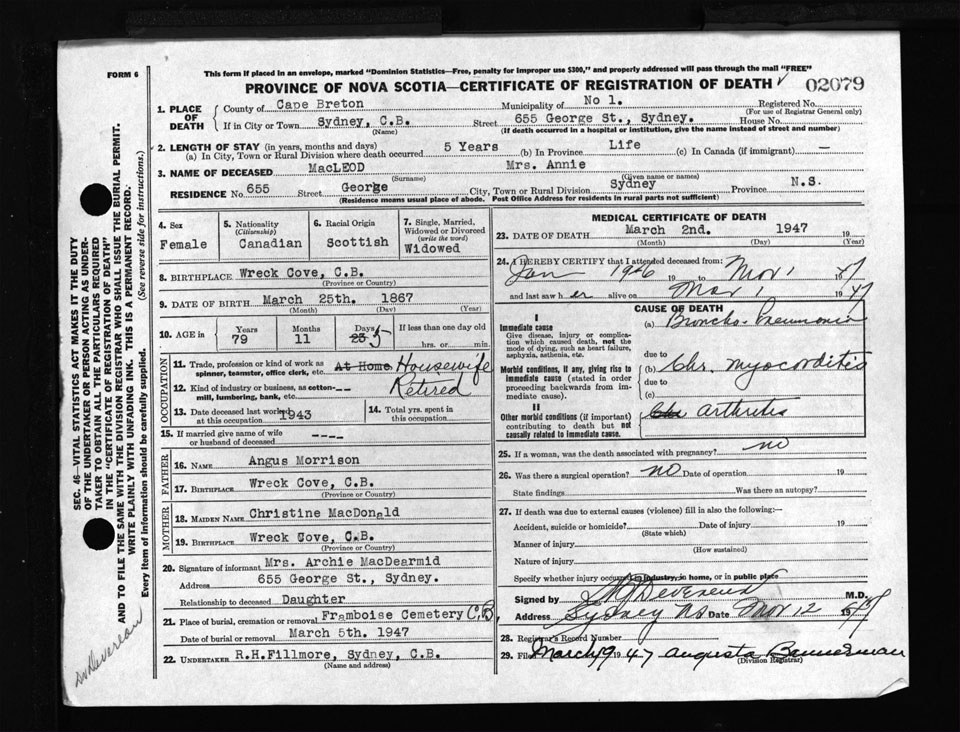 FORM 6
This form if placed in an envelope, marked "Dominion Statistics—Free, penalty for improper use $300," and properly addressed will pass through the mail "FREE"
PROVINCE OF NOVA SCOTIA—CERTIFICATE OF REGISTRATION OF DEATH 02079
1. PLACE OF DEATH
County of Cape Breton Municipality of No 1. Registered No.
(For use of Registrar General only)
If in City or Town Sydney, C.B. Street 655 George St., Sydney. House No.
(Name) (If death occurred in a hospital or institution, give the name instead of street and number)
2. LENGTH OF STAY (in years, months and days)
(a) In City, Town or Rural Division where death occurred 5 Years (b) In Province Life (c) In Canada (if immigrant) —
3. NAME OF DECEASED MacLEOD Mrs. Annie
(Surname) (Given name or names)
RESIDENCE No. 655 Street George City, Town or Rural Division Sydney Province N.S.
(Residence means usual place of abode. Post Office Address for residents in rural parts not sufficient)
4. Sex Female
5. Nationality (Citizenship) Canadian
6. Racial Origin Scottish
7. Single, Married, Widowed or Divorced (write the word) Widowed
8. BIRTHPLACE Wreck Cove, C.B.
(Province or Country)
9. DATE OF BIRTH March 25th. 1867
(Month) (Day) (Year)
10. AGE in Years 79 Months 11 Days 25 5 If less than one day old
hrs. or min.
OCCUPATION
11. Trade, profession or kind of work as spinner, teamster, office clerk, etc. At Home. Housewife
12. Kind of industry or business, as cotton-mill, lumbering, bank, etc. Retired
13. Date deceased last worked at this occupation 1943
14. Total yrs. spent in this occupation
15. If married give name of wife or husband of deceased ----
FATHER
16. NAME Angus Morrison
17. BIRTHPLACE Wreck Cove, C.B.
(Province or Country)
MOTHER
18. MAIDEN NAME Christine MacDonald
19. BIRTHPLACE Wreck Cove, C.B.
(Province or Country)
20. Signature of informant Mrs. Archie MacDearmid
Address 655 George St., Sydney.
Relationship to deceased Daughter
21. Place of burial, cremation or removal Framboise Cemetery C.B.
Date of burial or removal March 5th. 1947
22. UNDERTAKER R.H.Fillmore, Sydney, C.B.
(Name and address)
MEDICAL CERTIFICATE OF DEATH
23. DATE OF DEATH March 2nd. 1947 19
(Month) (Day) (Year)
24. I HEREBY CERTIFY that I attended deceased from:
Jan 1946 19 to Mar 1 1947
and last saw her alive on Mar 1 1947
CAUSE OF DEATH
I
Immediate cause
Give disease, injury or complication which caused death, not the mode of dying, such as heart failure, asphyxia, asthenia, etc.
(a) Broncho-Pneumonia
due to
Morbid conditions, if any, giving rise to immediate cause (stated in order proceeding backwards from immediate cause).
(b) Chr. myocarditis
due to
(c)
II
Other morbid conditions (if important) contributing to death but not causally related to immediate cause.
arthritis
25. If a woman, was the death associated with pregnancy? no
26. Was there a surgical operation? no Date of operation 19
State findings Was there an autopsy?
27. If death was due to external causes (violence) fill in also the following:—
Accident, suicide or homicide? Date of injury 19
(State which)
Manner of injury
(How sustained)
Nature of injury
Specify whether injury occurred in industry, in home, or in public place
Signed by Devereux M.D.
Address Sydney NS Date Mar 12 1947
28. Registrar's Record Number
29. Filed March 19 1947 Augusta Bannerman
(Division Registrar)
SEC. 46—VITAL STATISTICS ACT MAKES IT THE DUTY
OF THE UNDERTAKER OR PERSON ACTING AS UNDER-
TAKER TO OBTAIN ALL THE PARTICULARS REQUIRED
IN THE "CERTIFICATE OF REGISTRATION OF DEATH"
AND TO FILE THE SAME WITH THE DIVISION REGISTRAR WHO SHALL ISSUE THE BURIAL PERMIT.
WRITE PLAINLY WITH UNFADING INK. THIS IS A PERMANENT RECORD.
Every item of information should be carefully supplied. (See reverse side for instructions.)